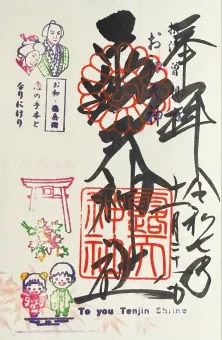 奉拝
令和七年
お初天神
露天神社
露天
神社
お初・徳兵衛
恋の手本と
なりにけり
To you Tenjin Shrine